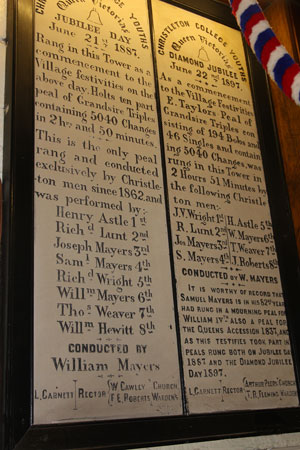 CHRISTLETON COLLEGE YOUTHS
Queen Victoria's
JUBILEE DAY
June 21st 1887.
Rang in this Tower as a
commencement to the
Village festivities on the
above day, Holts ten part
peal of Grandsire Triples
containing 5040 Changes
in 2hrs and 50 minutes.
This is the only peal
rang and conducted
exclusively by Christle-
ton men since 1862, and
was performed by:
Henry Astle 1st
Richd Lunt 2nd
Joseph Mayers 3rd
Saml Mayers 4th
Richd Wright 5th
Willm Mayers 6th
Thos Weaver 7th
Willm Hewitt 8th
CONDUCTED BY
William Mayers
L. GARNETT RECTOR
W CAWLEY CHURCH
F E. ROBERTS WARDENS
CHRISTLETON COLLEGE YOUTHS
Queen Victoria's
DIAMOND JUBILEE
June 22nd 1897.
As a commencement
to the Village Festivities
E. Taylors Peal of
Grandsire Triples con
sisting of 194 Bobs and
46 Singles and contain
ing 5040 Changes, was
rung in this tower in
2 Hours 51 Minutes by
the following Christle
ton men:
J.Y. Wright 1st H. Astle 5th
R. Lunt 2nd W. Mayers 6th
Jos Mayers 3rd T. Weaver 7th
S. Mayers 4th J. Roberts 8th
CONDUCTED BY W. MAYERS
IT IS WORTHY OF RECORD THAT
SAMUEL MAYERS IS IN HIS 82ND YEAR
HAD RUNG IN A MOURNING PEAL FOR
WILLIAM IVTH ALSO A PEAL FOR
THE QUEENS ACCESSION 1837, AND
AS THIS TESTIFIES TOOK PART IN
PEALS RUNG BOTH ON JUBILEE DAY
1887 AND THE DIAMOND JUBILEE
DAY 1897.
L. GARNETT RECTOR
ARTHUR PECK CHURCH
T. R. FLEMING WARDENS